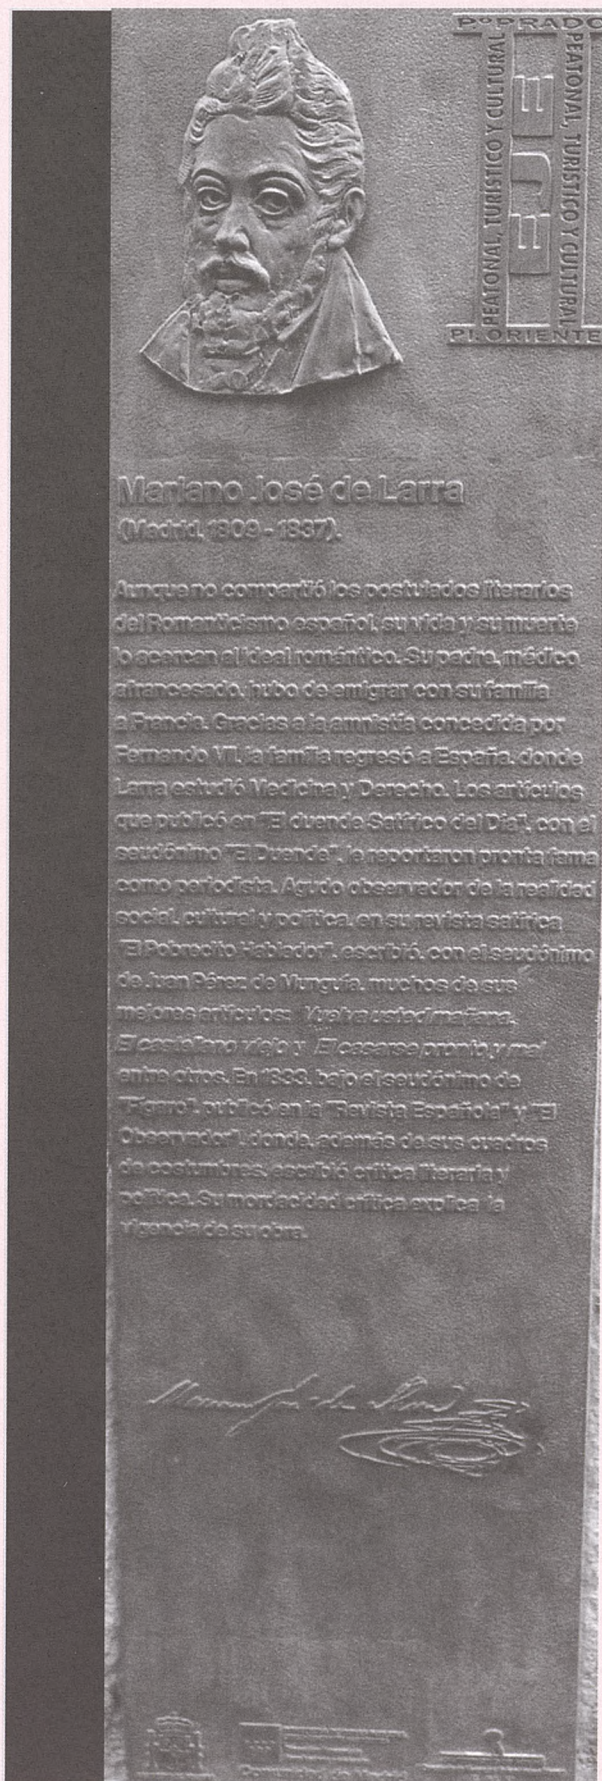 Pº PRADO
PEATONAL, TURÍSTICO Y CULTURAL
EJE
PEATONAL, TURÍSTICO Y CULTURAL
Pl. ORIENTE
Mariano José de Larra
(Madrid, 1809 - 1837).
Aunque no compartió los postulados literarios
del Romanticismo español, su vida y su muerte
lo acercan al ideal romántico. Su padre, médico
afrancesado, hubo de emigrar con su familia
a Francia. Gracias a la amnistía concedida por
Fernando VII, la familia regresó a España, donde
Larra estudió Medicina y Derecho. Los artículos
que publicó en "El duende Satírico del Día", con el
seudónimo "El Duende", le reportaron pronta fama
como periodista. Agudo observador de la realidad
social, cultural y política, en su revista satírica
"El Pobrecito Hablador", escribió, con el seudónimo
de Juan Pérez de Munguía, muchos de sus
mejores artículos: Vuelva usted mañana,
El castellano viejo y El casarse pronto y mal
entre otros. En 1833, bajo el seudónimo de
"Fígaro", publicó en la "Revista Española" y "El
Observador", donde, además de sus cuadros
de costumbres, escribió crítica literaria y
política. Su mordacidad crítica explica la
vigencia de su obra.
Comunidad de Madrid